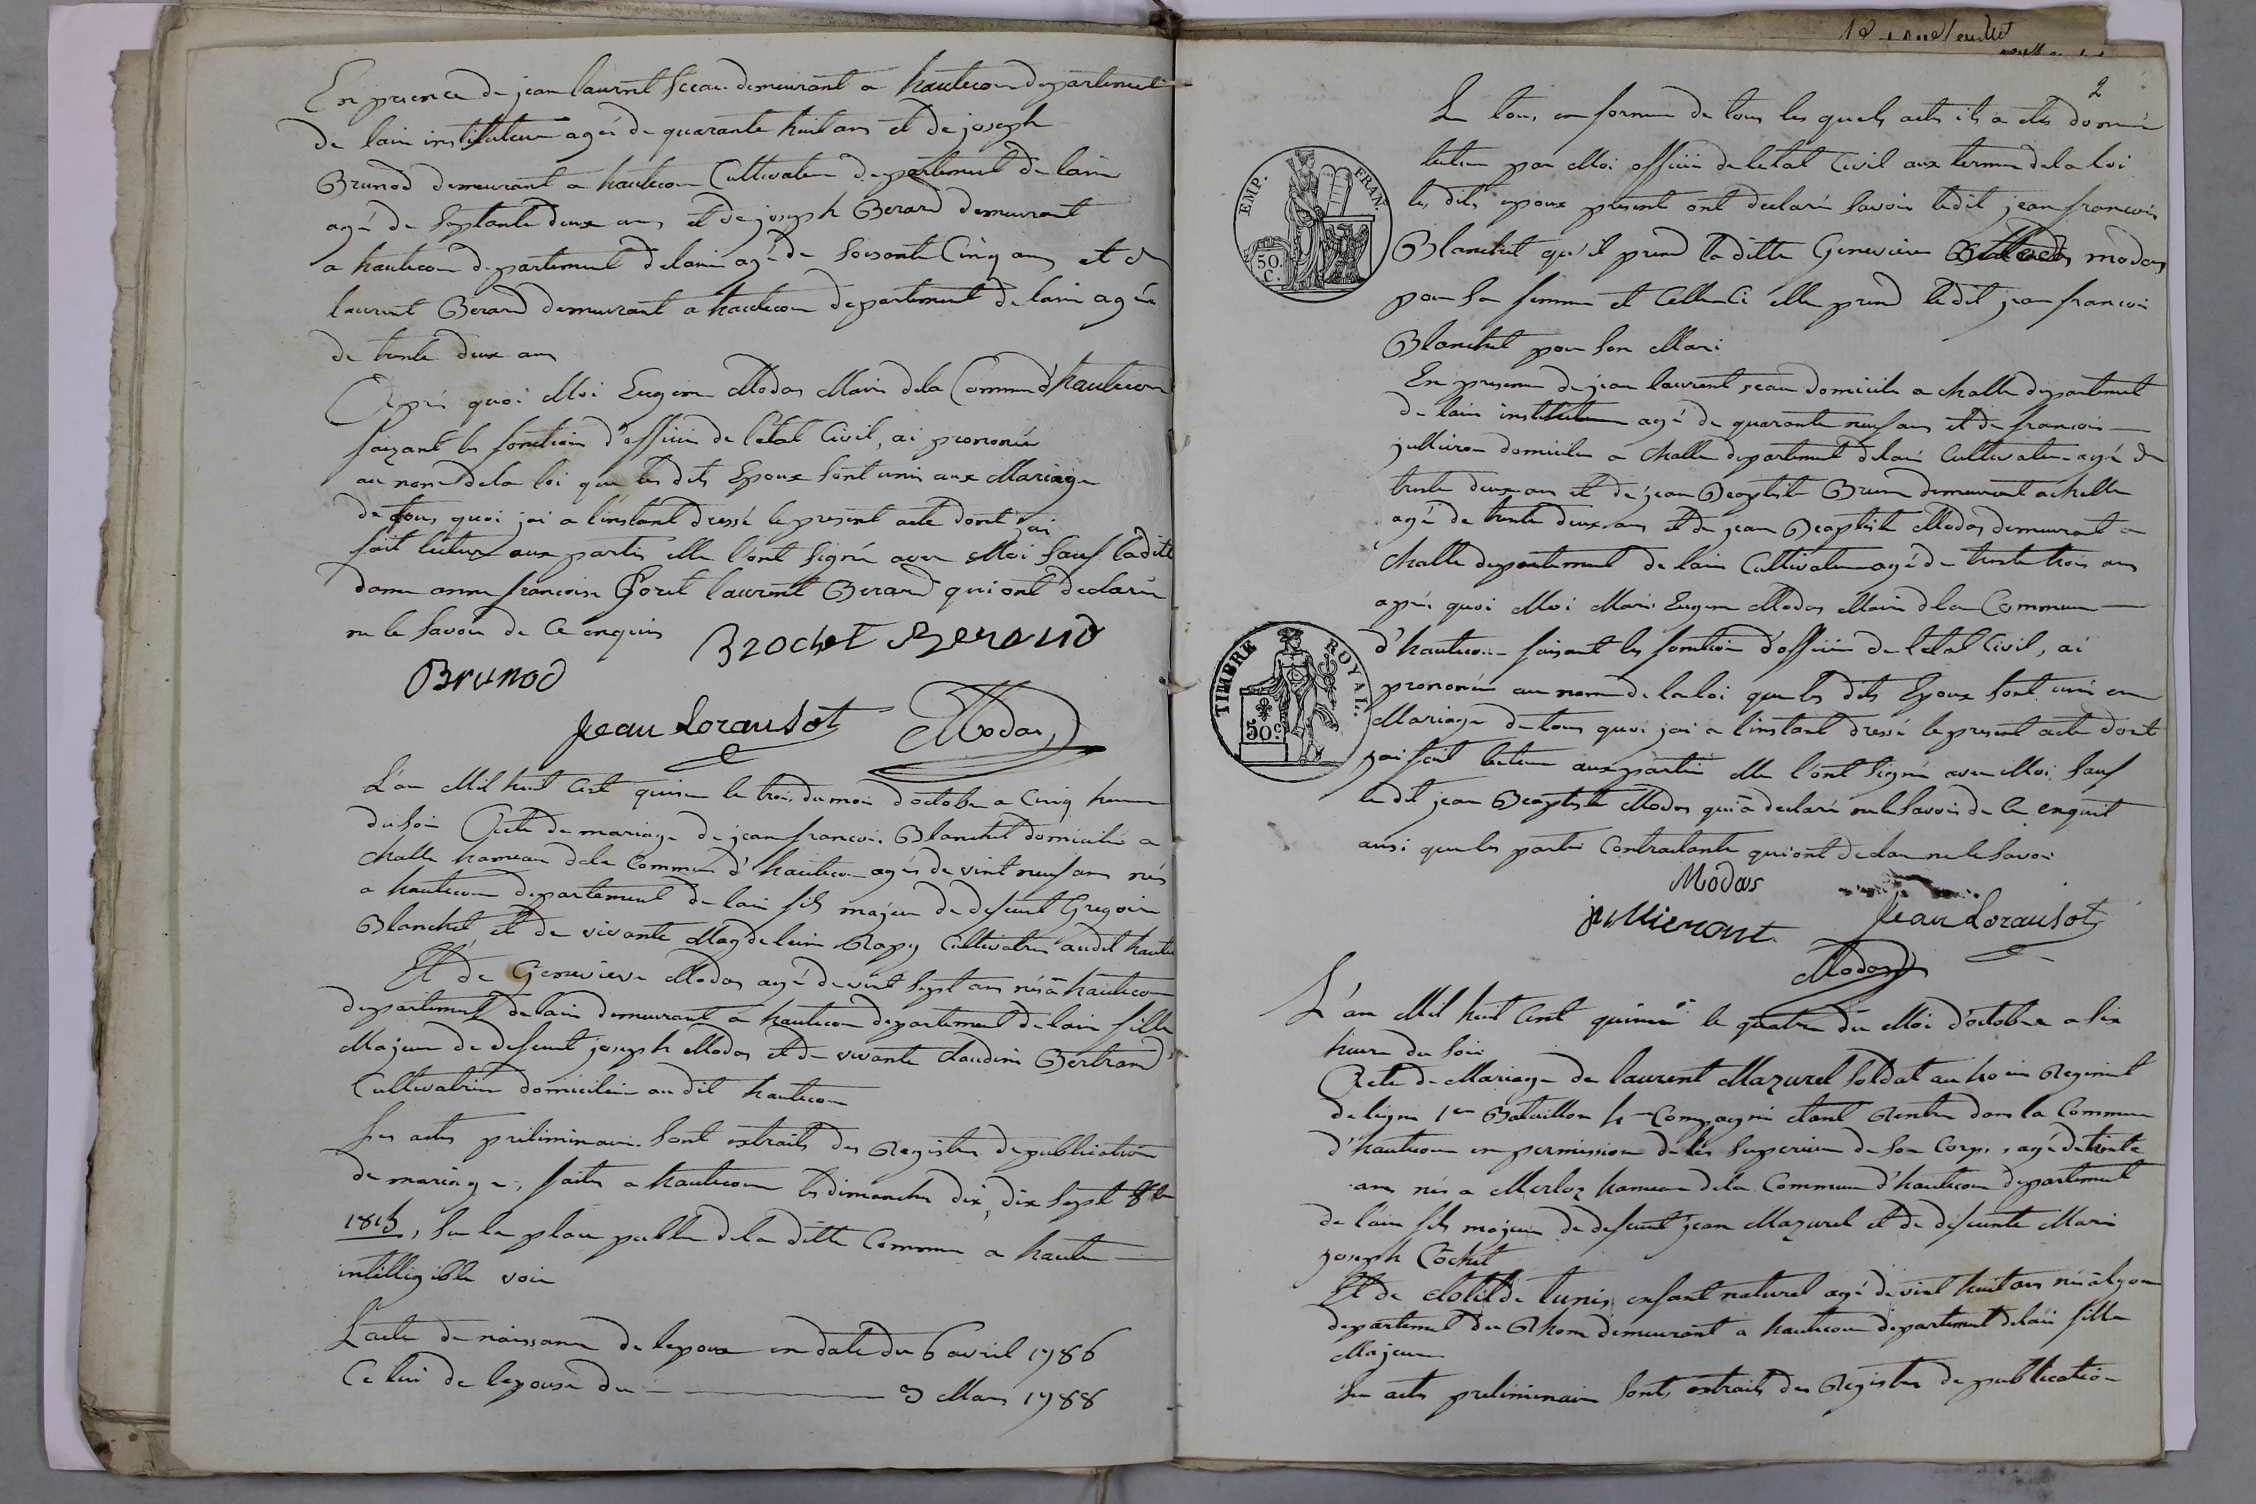 En presence de jean laurent Sceau demeurant a hautecour departement
de lain instituteur agés de quarante huit ans et de joseph
Brunod demeurant a hautecour Cultivateur departement de lain
agé de septante deux ans et de joseph Berard demeurant
a hautecour departement delain agé de soixante Cinq ans et de
laurent Berard demeurant a hautecour departement de lain agée
de trente deux ans
Aprés quoi Moi Eugene Modas Maire dela Commune d'hautecour
faizant les fonction d'officier de l'etat Civil, ai prononcée
au nom de la loi que les dits Epoux sont unis aux Mariage
de tous quoi jai a linstant dressé le present acte dont jai
fait lecture aux partis elle l'ont Signé avec Moi Sauf ladite
dame anne francoise laurent Berard qui ont declarée
ne le Savoir de Ce enquis Brochet Berard
Brunod
Jean Lorausot Modas
L'an Mil huit Cent quinze le trois du moi d'octobre a Cinq heure
du soir Acte de mariage de jean francois Blanchet domicilié a
Challe hameau dela Commune d'hautecour agés de vint neuf ans nés
a hautecour departement de lain fils majeur de defeunt Gregoire
Blanchet et de vivante Magdeleine Rapy Cultivatrice audit hautec
Et de Genevieve Modas agé de vint sept ans nés a hautecour
departement delain demeurant a hautecour departement de lain fille
Majeure de defeunt joseph Modas et de vivante Claudine Bertrand
Cultivatrice domiciliée au dit hautecour
Les actes priliminaire sont extraits des Registres de publication
de mariage, faites a hautecour les dimanches dix, dix sept
1815, sur la place publle dela ditte Commune a haute
intilligible voix
L'acte de naissance de lepoux en date du 6 avril 1786
Celui de lepouse du 3 Mars 1788
2
Le tous en forme de tous les quels acts ils a etés donnée
lecture par Moi officier de letat Civil aux terme dela loi
les dits epoux present ont declaré savoir ledit jean francois
Blanchet qu'il prend la ditte Genevieve modas
pour sa femme et Celle Ci elle prend ledit jean francois
Blanchet pour son Mari
En presence de jean laurent sceau domicile a challe departement
de lain instituteur agé de quarante neuf ans et de francois
jullieron domicilie a Challe departement delain Cultivateur agé de
trente deux ans et de jean Beaptiste Brun demeurant a chelle
agé de trente deux ans et de jean Beaptiste Modas demeurant a
Challe departement de lain Cultivateur agé de trente trois ans
aprés quoi Moi Mari Eugene Modas Maire dela Commune
d'hautecour faisant les fonction d'officier de l'etat Civil, ai
prononcée au nom de la loi que les dits Epoux sont unis en
Mariage de tous quoi jai a linstant dressé le present acte dont
jai fait lecture aux partie elle l'ont Signée avec Moi Sauf
le dit jean Beaptiste Modas qui a declaré ne le Savoir de Ce enquit
ausi que les partie Contractante qui ont declare ne le Savoir
Modas
jullieront Jean Lorausot
Modas
L'an Mil huit Cent quinze le quatre du Moi d'octobre a Six
heure du Soir
Acte de Mariage de laurent Mazurel soldat au Regiment
de ligne 1er Bataillon Compagnie etant Rentre dans la Commune
d'hautecour en permission de les Superieur de son Corps, agé de trente
ans nés a Merloz hameau dela Commune d'hautecour departement
de lain fils majeur de defeunt jean Mazurel et de defeunte Marie
joseph Cochet
Et de Clotilde Tunis enfant naturel agé de vint huit ans nés a lyon
departement du Rhone demeurant a hautecour departement delain fille
Majeure
Les acts preliminaire sonts extraits des Registre de publication
EMP. FRAN.
50. C.
TIMBRE ROYAL.
50 c.